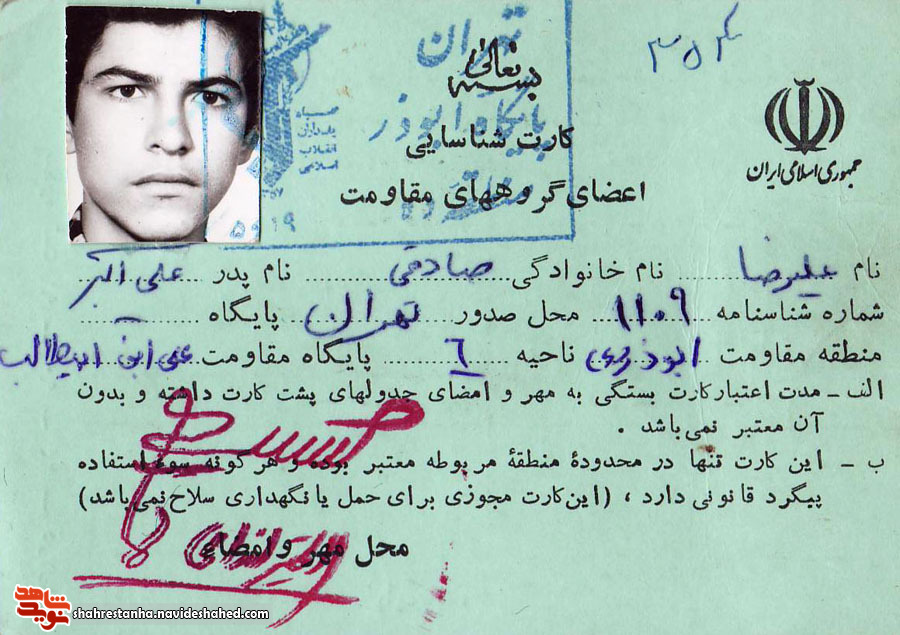 کد ۳۵
بسمه تعالی
تهران
پایگاه ابوذر
منطقه
سپاه
پاسداران
انقلاب
اسلامی
کارت شناسایی
اعضای گروههای مقاومت
جمهوری اسلامی ایران
نام علیرضا نام خانوادگی صادقی نام پدر علی اکبر
شماره شناسنامه ۱۱۰۹ محل صدور تهران پایگاه ـ
منطقه مقاومت ابوذری ناحیه ۶ پایگاه مقاومت علی ابن ابیطالب
الف ـ مدت اعتبار کارت بستگی به مهر و امضای جدولهای پشت کارت داشته و بدون
آن معتبر نمی باشد .
ب ـ این کارت تنها در محدودهٔ منطقهٔ مربوطه معتبر بوده و هر گونه سوء استفاده
پیگرد قانونی دارد ، (این کارت مجوزی برای حمل یا نگهداری سلاح نمی باشد)
محل مهر و امضاء
شاهد
نوید
shahrestanha.navideshahed.com